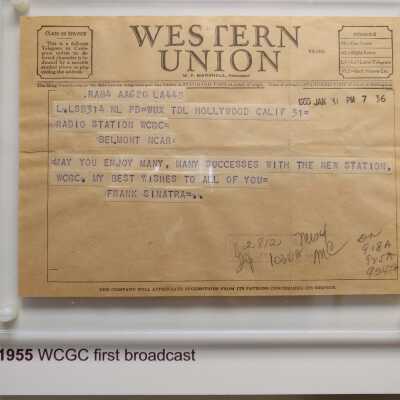 CLASS OF SERVICE
This is a full-rate
Telegram or Cable-
gram unless its de-
ferred character is in-
dicated by a suitable
symbol above or pre-
ceding the address.
WESTERN
UNION
W. P. MARSHALL, PRESIDENT
SYMBOLS
.RA84 AA626 LA445
1955 JAN 31 PM 7 36
L.LSB314 NL PD=WUX TDL HOLLYWOOD CALIF 31=
RADIO STATION WCGC=
BELMONT NCAR=
MAY YOU ENJOY MANY, MANY SUCCESSES WITH THE NEW STATION,
WCGC. MY BEST WISHES TO ALL OF YOU=
FRANK SINATRA=..
2812
1030A MC
918A
925A
THE COMPANY WILL APPRECIATE SUGGESTIONS FROM ITS PATRONS CONCERNING ITS SERVICE
1955 WCGC first broadcast